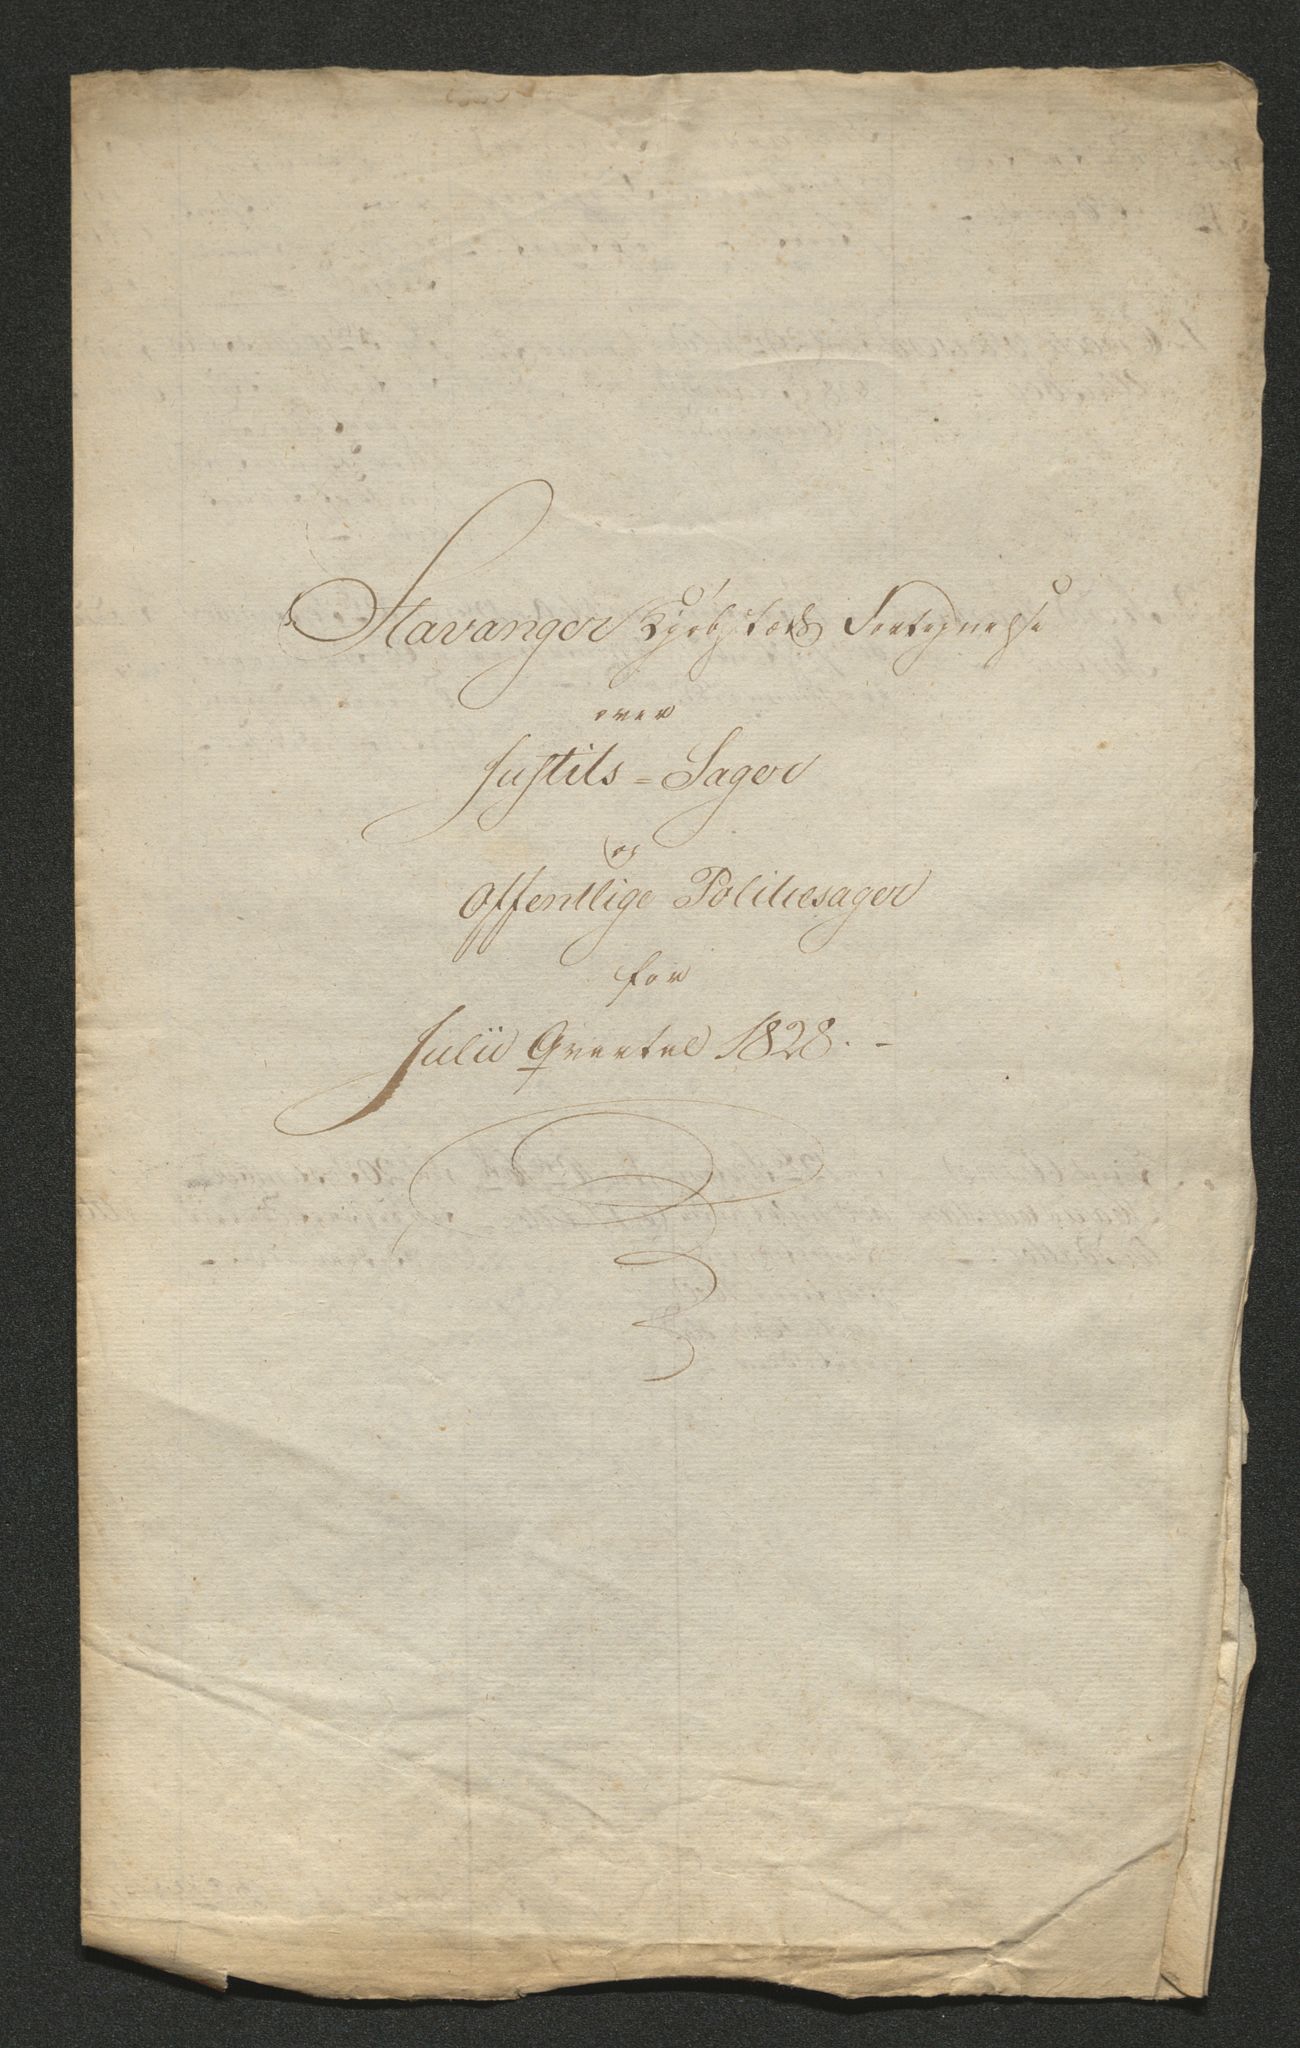 Stavanger Kjøbstæds Fortegnelse
over
Justits=Sager
og
Offentlige Politiesager
for
Julii Qvartal 1828. -